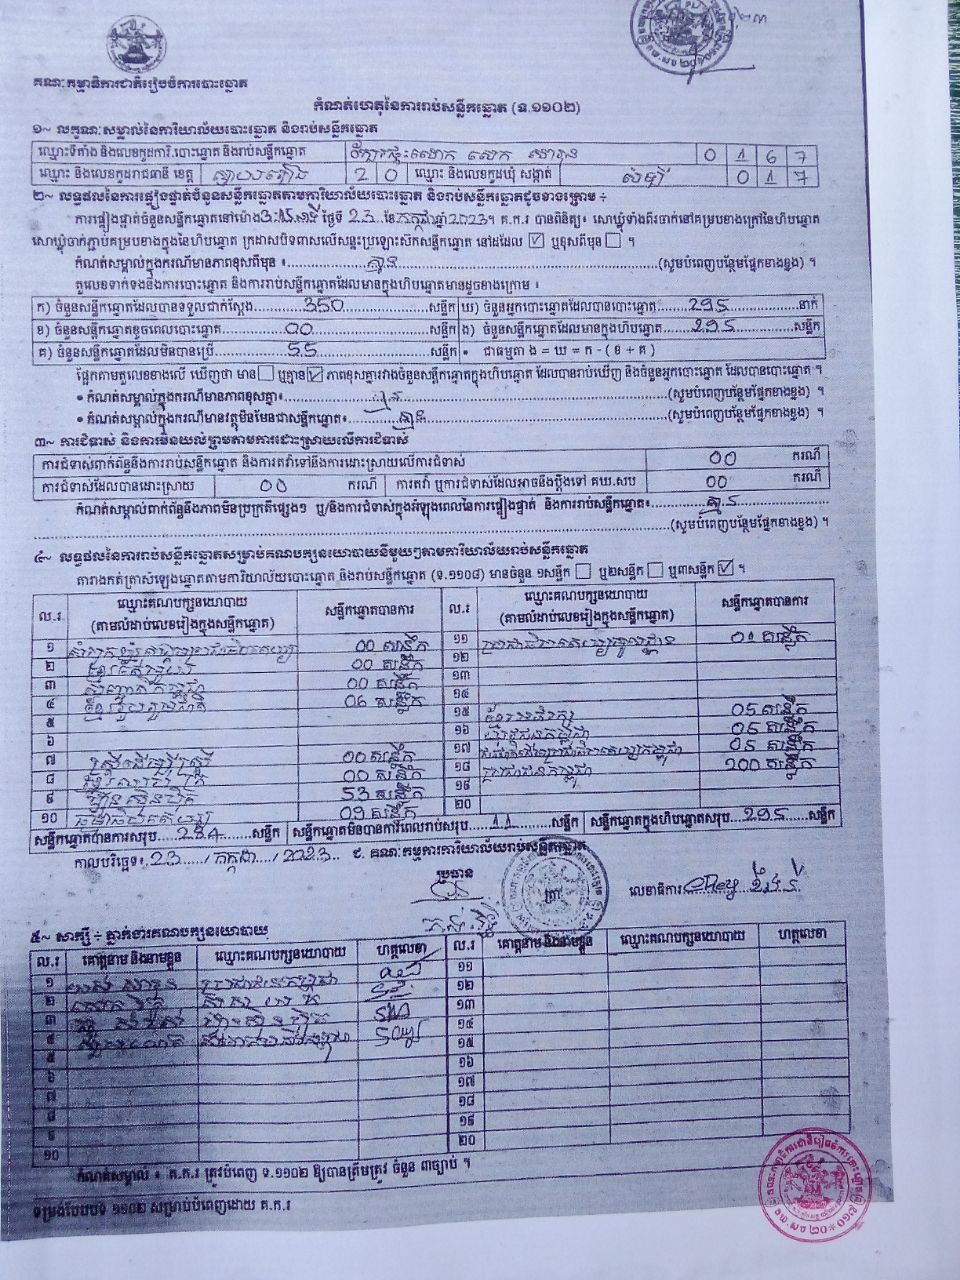 គណៈកម្មាធិការជាតិរៀបចំការបោះឆ្នោត
កំណត់ហេតុនៃការរាប់សន្លឹកឆ្នោត (ទ.១១០២)
១~ លក្ខណៈសម្គាល់នៃការិយាល័យបោះឆ្នោត និងរាប់សន្លឹកឆ្នោត
ឈ្មោះទីតាំង និងលេខកូដការិ.បោះឆ្នោត និងរាប់សន្លឹកឆ្នោត 0 1 6 7
ឈ្មោះ និងលេខកូដរាជធានី ខេត្ត ស្វាយរៀង 2 0 ឈ្មោះ និងលេខកូដឃុំ សង្កាត់ 0 1 7
២~ លទ្ធផលនៃការផ្ទៀងផ្ទាត់ចំនួនសន្លឹកឆ្នោតតាមការិយាល័យបោះឆ្នោត និងរាប់សន្លឹកឆ្នោតដូចខាងក្រោម ÷
ការផ្ទៀងផ្ទាត់ចំនួនសន្លឹកឆ្នោតនៅម៉ោង ថ្ងៃទី 23 ខែ កក្កដា ឆ្នាំ 2023។ គ.ក.រ បានពិនិត្យ៖ សោឃ្លុំទាំងពីរចាក់នៅគម្របខាងក្រៅនៃហិបឆ្នោត
សោឃ្លុំចាក់ភ្ជាប់គម្របខាងក្នុងនៃហិបឆ្នោត ក្រដាសបិទពាសលើសន្ទះប្រឡោះស៊កសន្លឹកឆ្នោត នៅដដែល ☑ ឬខុសពីមុន ☐ ។
កំណត់សម្គាល់ក្នុងករណីមានភាពខុសពីមុន ៖ គ្មាន (សូមបំពេញបន្ថែមផ្នែកខាងខ្នង) ។
តួលេខទាក់ទងនឹងការបោះឆ្នោត និងការរាប់សន្លឹកឆ្នោតដែលមានក្នុងហិបឆ្នោតមានដូចខាងក្រោម ៖
ក) ចំនួនសន្លឹកឆ្នោតដែលបានទទួលជាក់ស្តែង 350 សន្លឹក ឃ) ចំនួនអ្នកបោះឆ្នោតដែលបានបោះឆ្នោត 295 នាក់
ខ) ចំនួនសន្លឹកឆ្នោតខូចពេលបោះឆ្នោត 00 សន្លឹក ង) ចំនួនសន្លឹកឆ្នោតដែលមានក្នុងហិបឆ្នោត 295 សន្លឹក
គ) ចំនួនសន្លឹកឆ្នោតដែលមិនបានប្រើ 55 សន្លឹក • ជាធម្មតា ង = ឃ = ក - ( ខ + គ )
ផ្អែកតាមតួលេខខាងលើ ឃើញថា មាន ☐ ឬគ្មាន ☑ ភាពខុសគ្នារវាងចំនួនសន្លឹកឆ្នោតក្នុងហិបឆ្នោត ដែលបានរាប់ឃើញ និងចំនួនអ្នកបោះឆ្នោត ដែលបានបោះឆ្នោត ។
• កំណត់សម្គាល់ក្នុងករណីមានភាពខុសគ្នា៖ គ្មាន (សូមបំពេញបន្ថែមផ្នែកខាងខ្នង) ។
• កំណត់សម្គាល់ក្នុងករណីមានវត្ថុមិនមែនជាសន្លឹកឆ្នោត៖ គ្មាន (សូមបំពេញបន្ថែមផ្នែកខាងខ្នង) ។
៣~ ការជំទាស់ និងការមិនយល់ព្រមតាមការដោះស្រាយលើការជំទាស់
ការជំទាស់ពាក់ព័ន្ធនឹងការរាប់សន្លឹកឆ្នោត និងការតវ៉ាទៅនឹងការដោះស្រាយលើការជំទាស់ 00 ករណី
ការជំទាស់ដែលបានដោះស្រាយ 00 ករណី ការតវ៉ា ឬការជំទាស់ដែលអាចនឹងប្តឹងទៅ គឃ.សប 00 ករណី
កំណត់សម្គាល់ពាក់ព័ន្ធនឹងភាពមិនប្រក្រតីផ្សេងៗ ឬ/និងការជំទាស់ក្នុងអំឡុងពេលនៃការផ្ទៀងផ្ទាត់ និងការរាប់សន្លឹកឆ្នោត៖ គ្មាន
(សូមបំពេញបន្ថែមផ្នែកខាងខ្នង) ។
៤~ លទ្ធផលនៃការរាប់សន្លឹកឆ្នោតសម្រាប់គណបក្សនយោបាយនីមួយៗតាមការិយាល័យរាប់សន្លឹកឆ្នោត
តារាងកត់ត្រាសំឡេងឆ្នោតតាមការិយាល័យបោះឆ្នោត និងរាប់សន្លឹកឆ្នោត (ទ.១១០៨) មានចំនួន ១សន្លឹក ☐ ឬ២សន្លឹក ☐ ឬ៣សន្លឹក ☑ ។
ល.រ ឈ្មោះគណបក្សនយោបាយ (តាមលំដាប់លេខរៀងក្នុងសន្លឹកឆ្នោត) សន្លឹកឆ្នោតបានការ ល.រ ឈ្មោះគណបក្សនយោបាយ (តាមលំដាប់លេខរៀងក្នុងសន្លឹកឆ្នោត) សន្លឹកឆ្នោតបានការ
១ 00 សន្លឹក ១១ សន្លឹក
២ 00 សន្លឹក ១២
៣ 00 សន្លឹក ១៣
៤ ខ្មែររួបរួមជាតិ 06 សន្លឹក ១៤
៥ ១៥ 05 សន្លឹក
៦ ១៦ យុវជនកម្ពុជា 05 សន្លឹក
៧ 00 សន្លឹក ១៧ 05 សន្លឹក
៨ 00 សន្លឹក ១៨ ប្រជាជនកម្ពុជា 200 សន្លឹក
៩ ហ៊្វុនស៊ិនប៉ិច 53 សន្លឹក ១៩
១០ សន្លឹក 20
សន្លឹកឆ្នោតបានការសរុប 284 សន្លឹក សន្លឹកឆ្នោតមិនបានការពេលរាប់សរុប 11 សន្លឹក សន្លឹកឆ្នោតក្នុងហិបឆ្នោតសរុប 295 សន្លឹក
កាលបរិច្ឆេទ៖ 23 / កក្កដា / 2023 ជ. គណៈកម្មការការិយាល័យរាប់សន្លឹកឆ្នោត
ប្រធាន
លេខាធិការ
៥~ សាក្សី ÷ ភ្នាក់ងារគណបក្សនយោបាយ
ល.រ គោត្តនាម និងនាមខ្លួន ឈ្មោះគណបក្សនយោបាយ ហត្ថលេខា ល.រ គោត្តនាម និងនាមខ្លួន ឈ្មោះគណបក្សនយោបាយ ហត្ថលេខា
១ ប្រជាជនកម្ពុជា ១១
២ ១២
៣ ហ៊្វុនស៊ិនប៉ិច ១៣
៤ ១៤
៥ ១៥
៦ ១៦
៧ ១៧
៨ ១៨
៩ ១៩
១០ 20
កំណត់សម្គាល់ ៖ គ.ក.រ ត្រូវបំពេញ ទ.១១០២ ឱ្យបានត្រឹមត្រូវ ចំនួន ៣ច្បាប់ ។
ទម្រង់បែបបទ ១១០២ សម្រាប់បំពេញដោយ គ.ក.រ